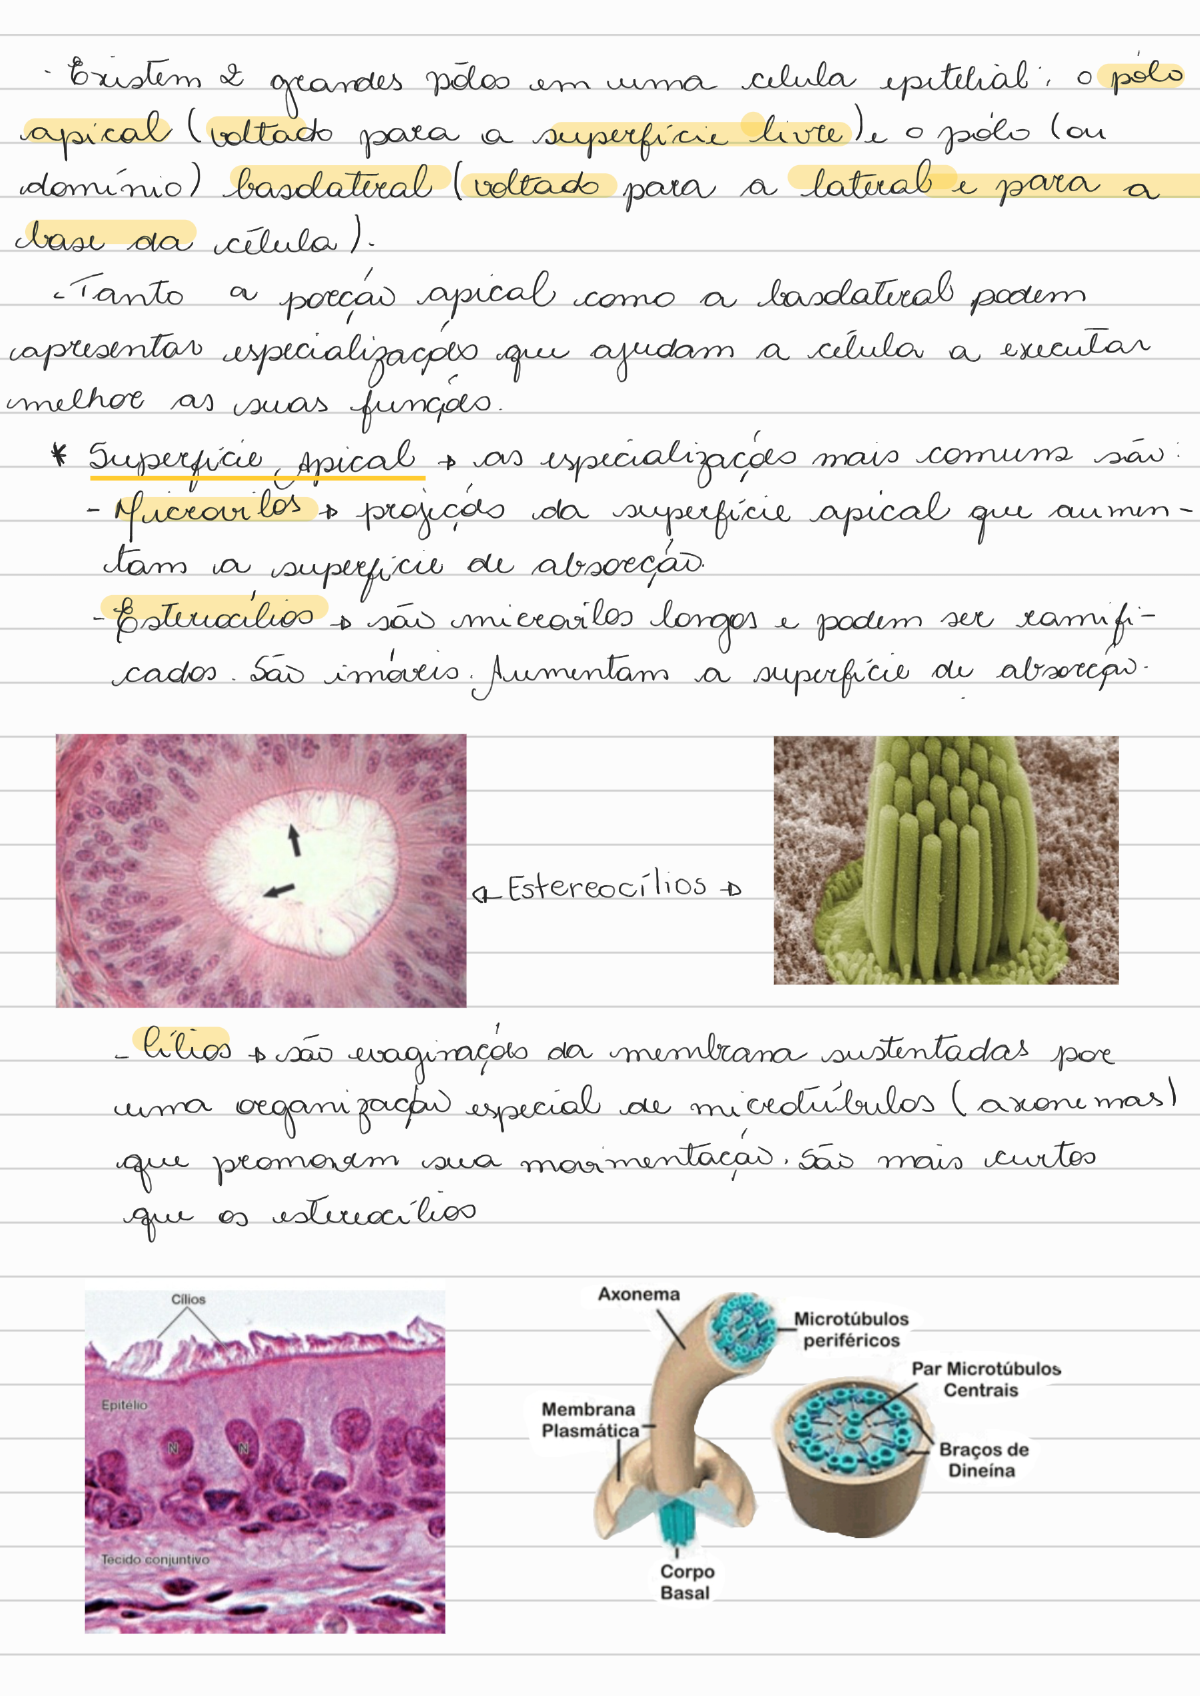 - Existem 2 grandes pólos em uma célula epitelial: o pólo
apical (voltado para a superfície livre) e o pólo (ou
domínio) basolateral (voltado para a lateral e para a
base da célula).
- Tanto a porção apical como a basolateral podem
apresentar especializações que ajudam a célula a executar
melhor as suas funções.
* Superfície Apical → as especializações mais comuns são:
- Microvilos → projeções da superfície apical que aumen-
tam a superfície de absorção.
- Estereocílios → são microvilos longos e podem ser ramifi-
cados. São imóveis. Aumentam a superfície de absorção.
← Estereocílios →
- Cílios → são evaginações da membrana sustentadas por
uma organização especial de microtúbulos (axonemas)
que promovem sua movimentação. São mais curtos
que os estereocílios
Cílios
Epitélio
N
N
Tecido conjuntivo
Axonema
Microtúbulos
periféricos
Par Microtúbulos
Centrais
Membrana
Plasmática
Braços de
Dineína
Corpo
Basal